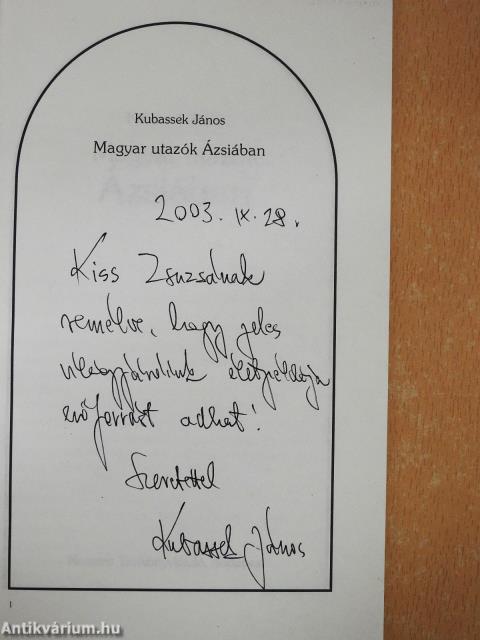 Kubassek János
Magyar utazók Ázsiában
2003. IX. 28.
Kiss Zsuzsának
remélve, hogy jeles
világjáróink életpéldája
erőforrást adhat!
Szeretettel
Kubassek János
1
Antikvárium.hu